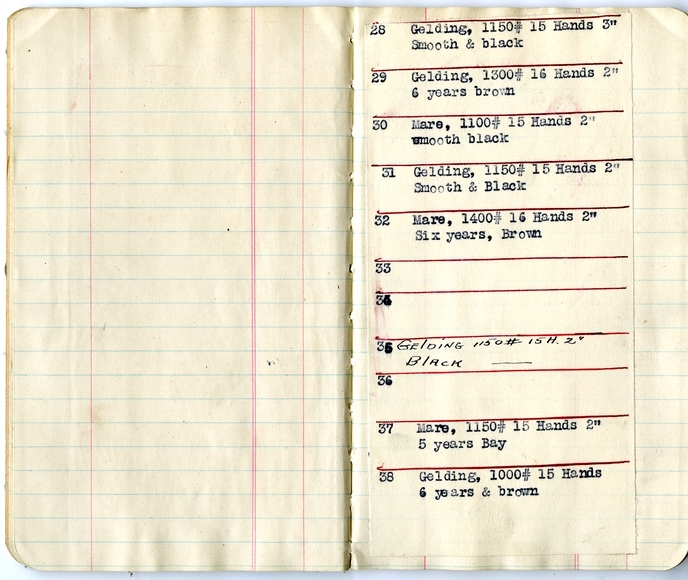 28 Gelding, 1150# 15 Hands 3"
Smooth & black
29 Gelding, 1300# 16 Hands 2"
6 years brown
30 Mare, 1100# 15 Hands 2"
smooth black
31 Gelding, 1150# 15 Hands 2"
Smooth & Black
32 Mare, 1400# 16 Hands 2"
Six years, Brown
33
34
35 GELDING 1150# 15 H. 2"
BLACK —
36
37 Mare, 1150# 15 Hands 2"
5 years Bay
38 Gelding, 1000# 15 Hands
6 years & brown